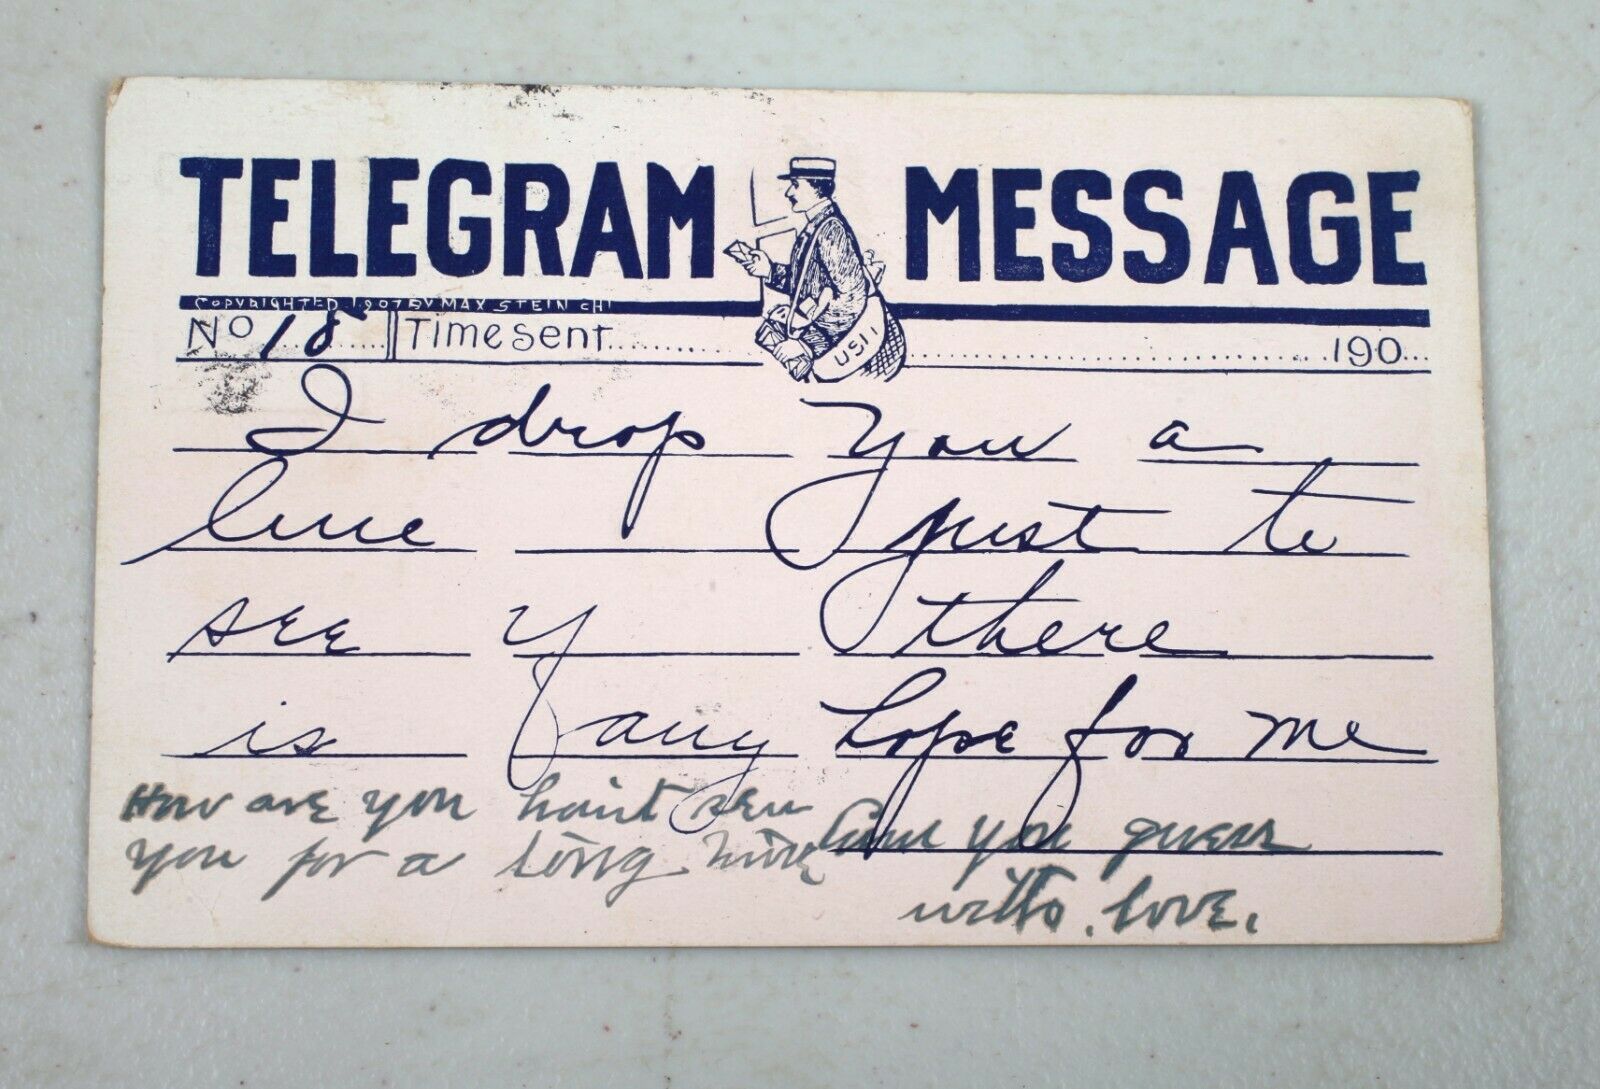 TELEGRAM MESSAGE
COPYRIGHTED 1907 BY MAX STEIN CHI
No 18 Time sent 190
I drop you a
line just to
see if there
is any hope for me
How are you haint seen
you for a long time
Can you guess
with love.